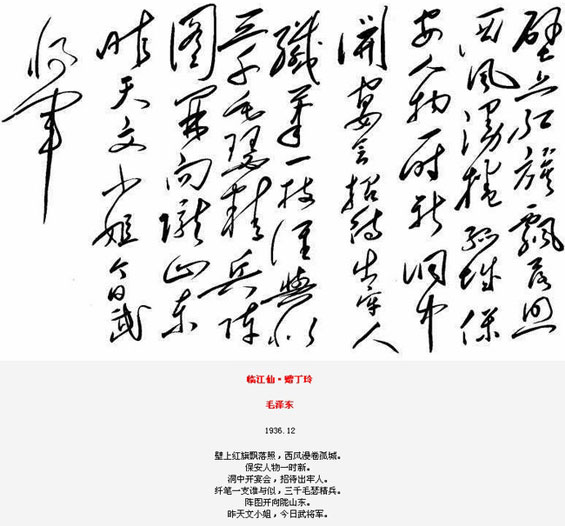 壁上红旗飘落照
西风漫捲孤城保
安人物一时新洞中
開宴会招待出牢人
纖筆一枝谁與似
三千毛瑟精兵阵
图開向隴山东
昨天文小姐今日武
将军
临江仙·赠丁玲
毛泽东
1936.12
壁上红旗飘落照，西风漫卷孤城。
保安人物一时新。
洞中开宴会，招待出牢人。
纤笔一支谁与似，三千毛瑟精兵。
阵图开向陇山东。
昨天文小姐，今日武将军。